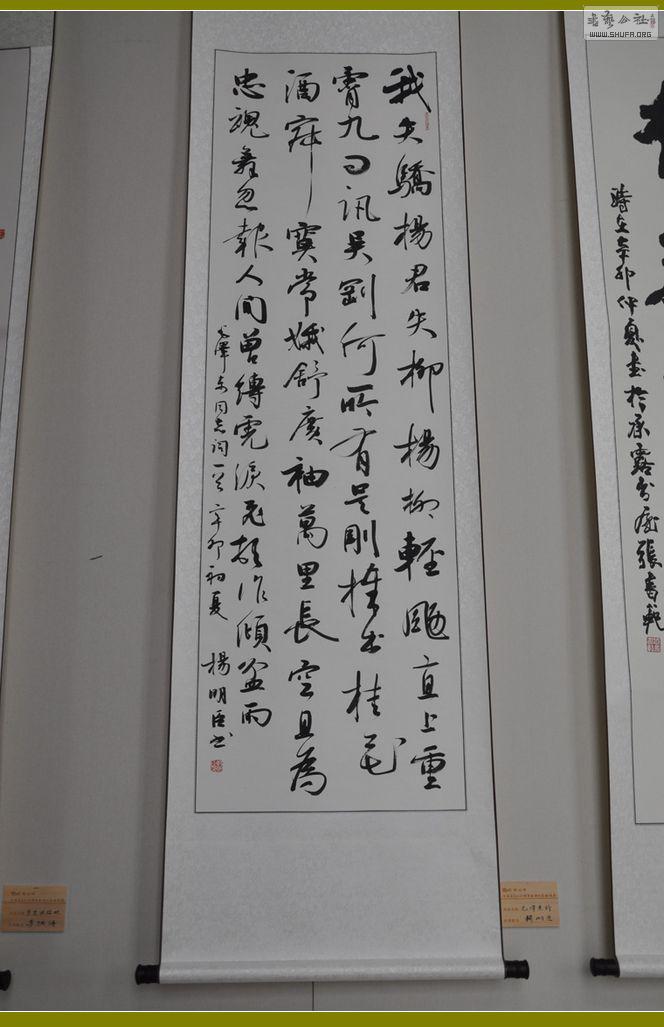 書藝公社
WWW.SHUFA.ORG
我失驕楊君失柳楊柳輕颺直上重
霄九问訊吳剛何所有吳剛捧出桂花
酒寂寞常娥舒廣袖萬里長空且為
忠魂舞忽報人間曾縛虎淚飛頓作傾盆雨
毛澤东同志词一首辛卯初夏楊明臣书
時在辛卯仲夏書於承露張書範